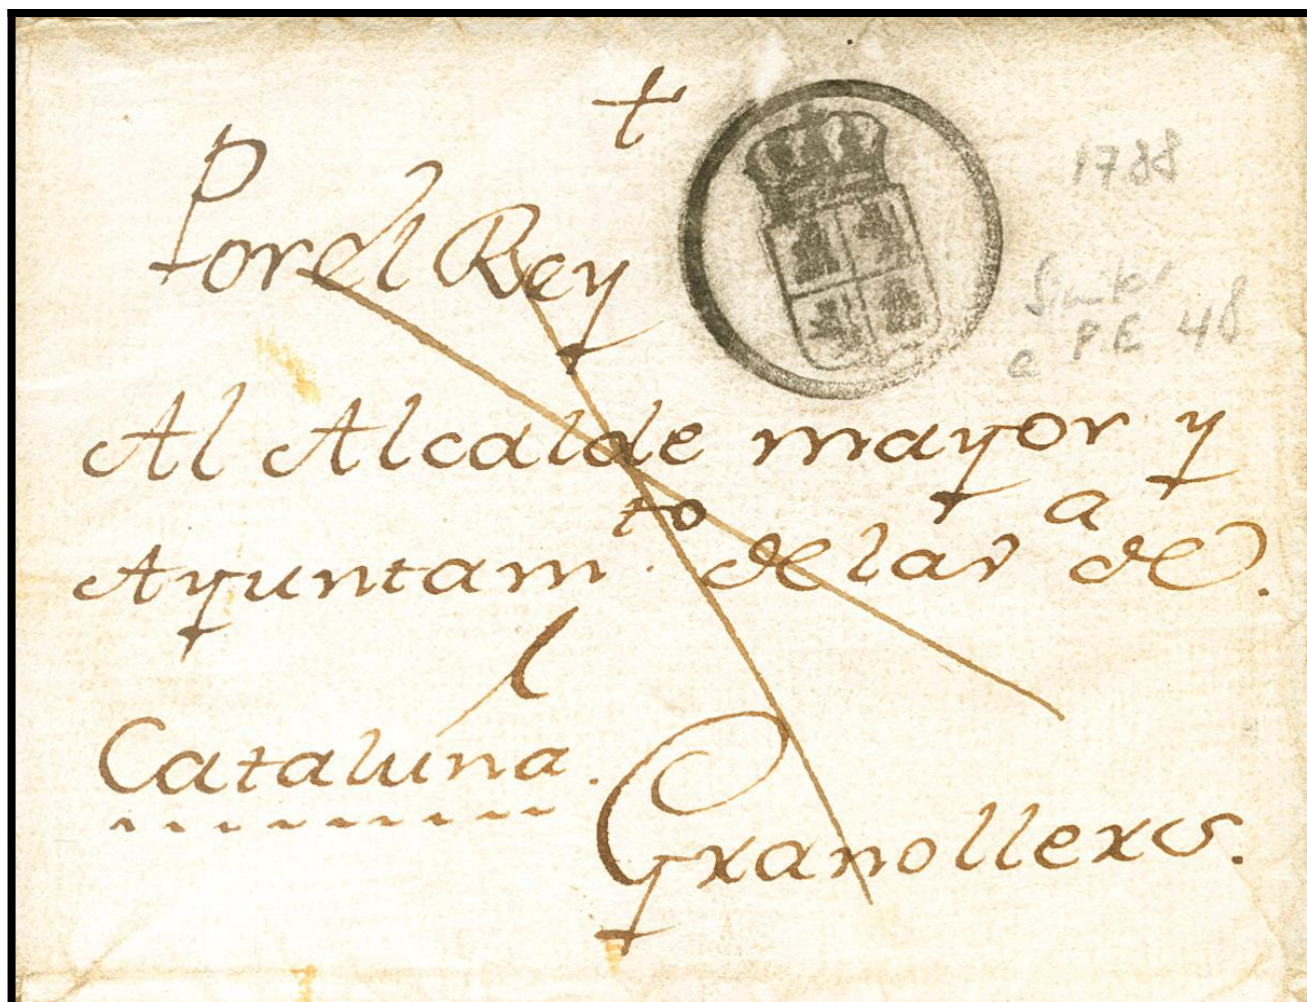 †
Por el Rey
1788
Similar
a P.E 48
Al Alcalde mayor y
Ayuntam.to de la V.a de.
Cataluna.
Granollers.